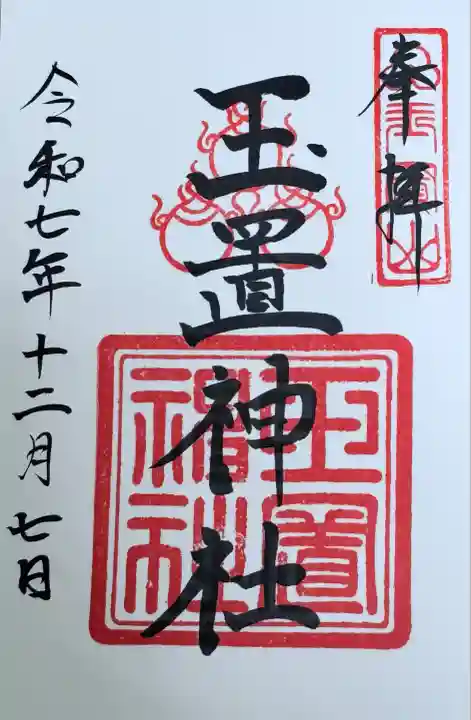 奉拝
玉置山
玉置神社
玉置神社
令和七年十二月七日